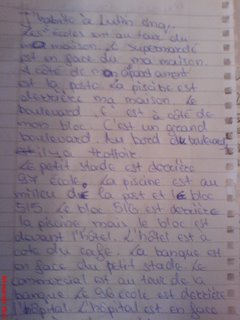 J'habite à
Les écoles sont au tour du
maison. Le supermarché
est en face du ma maison.
A côté de mon apartament
est la poste. La piscine est
derrière ma maison. Le
boulevard est à côté de
mois bloc. C'est un grand
boulevard. Au bord du boulevard
il y a trottoir.
Le petit stade est derrière
97 école. La piscine est au
milieu de la post et le bloc
515. Le bloc 516 est derrière
la piscine, mais le bloc est
devant l'hôtel. L'hôtel est à
côté du café. La banque est
en face du petit stade. Le
commercial est au tour de la
banque. Le 96 école est derrière
l'hôpital. L'hôpital est en face